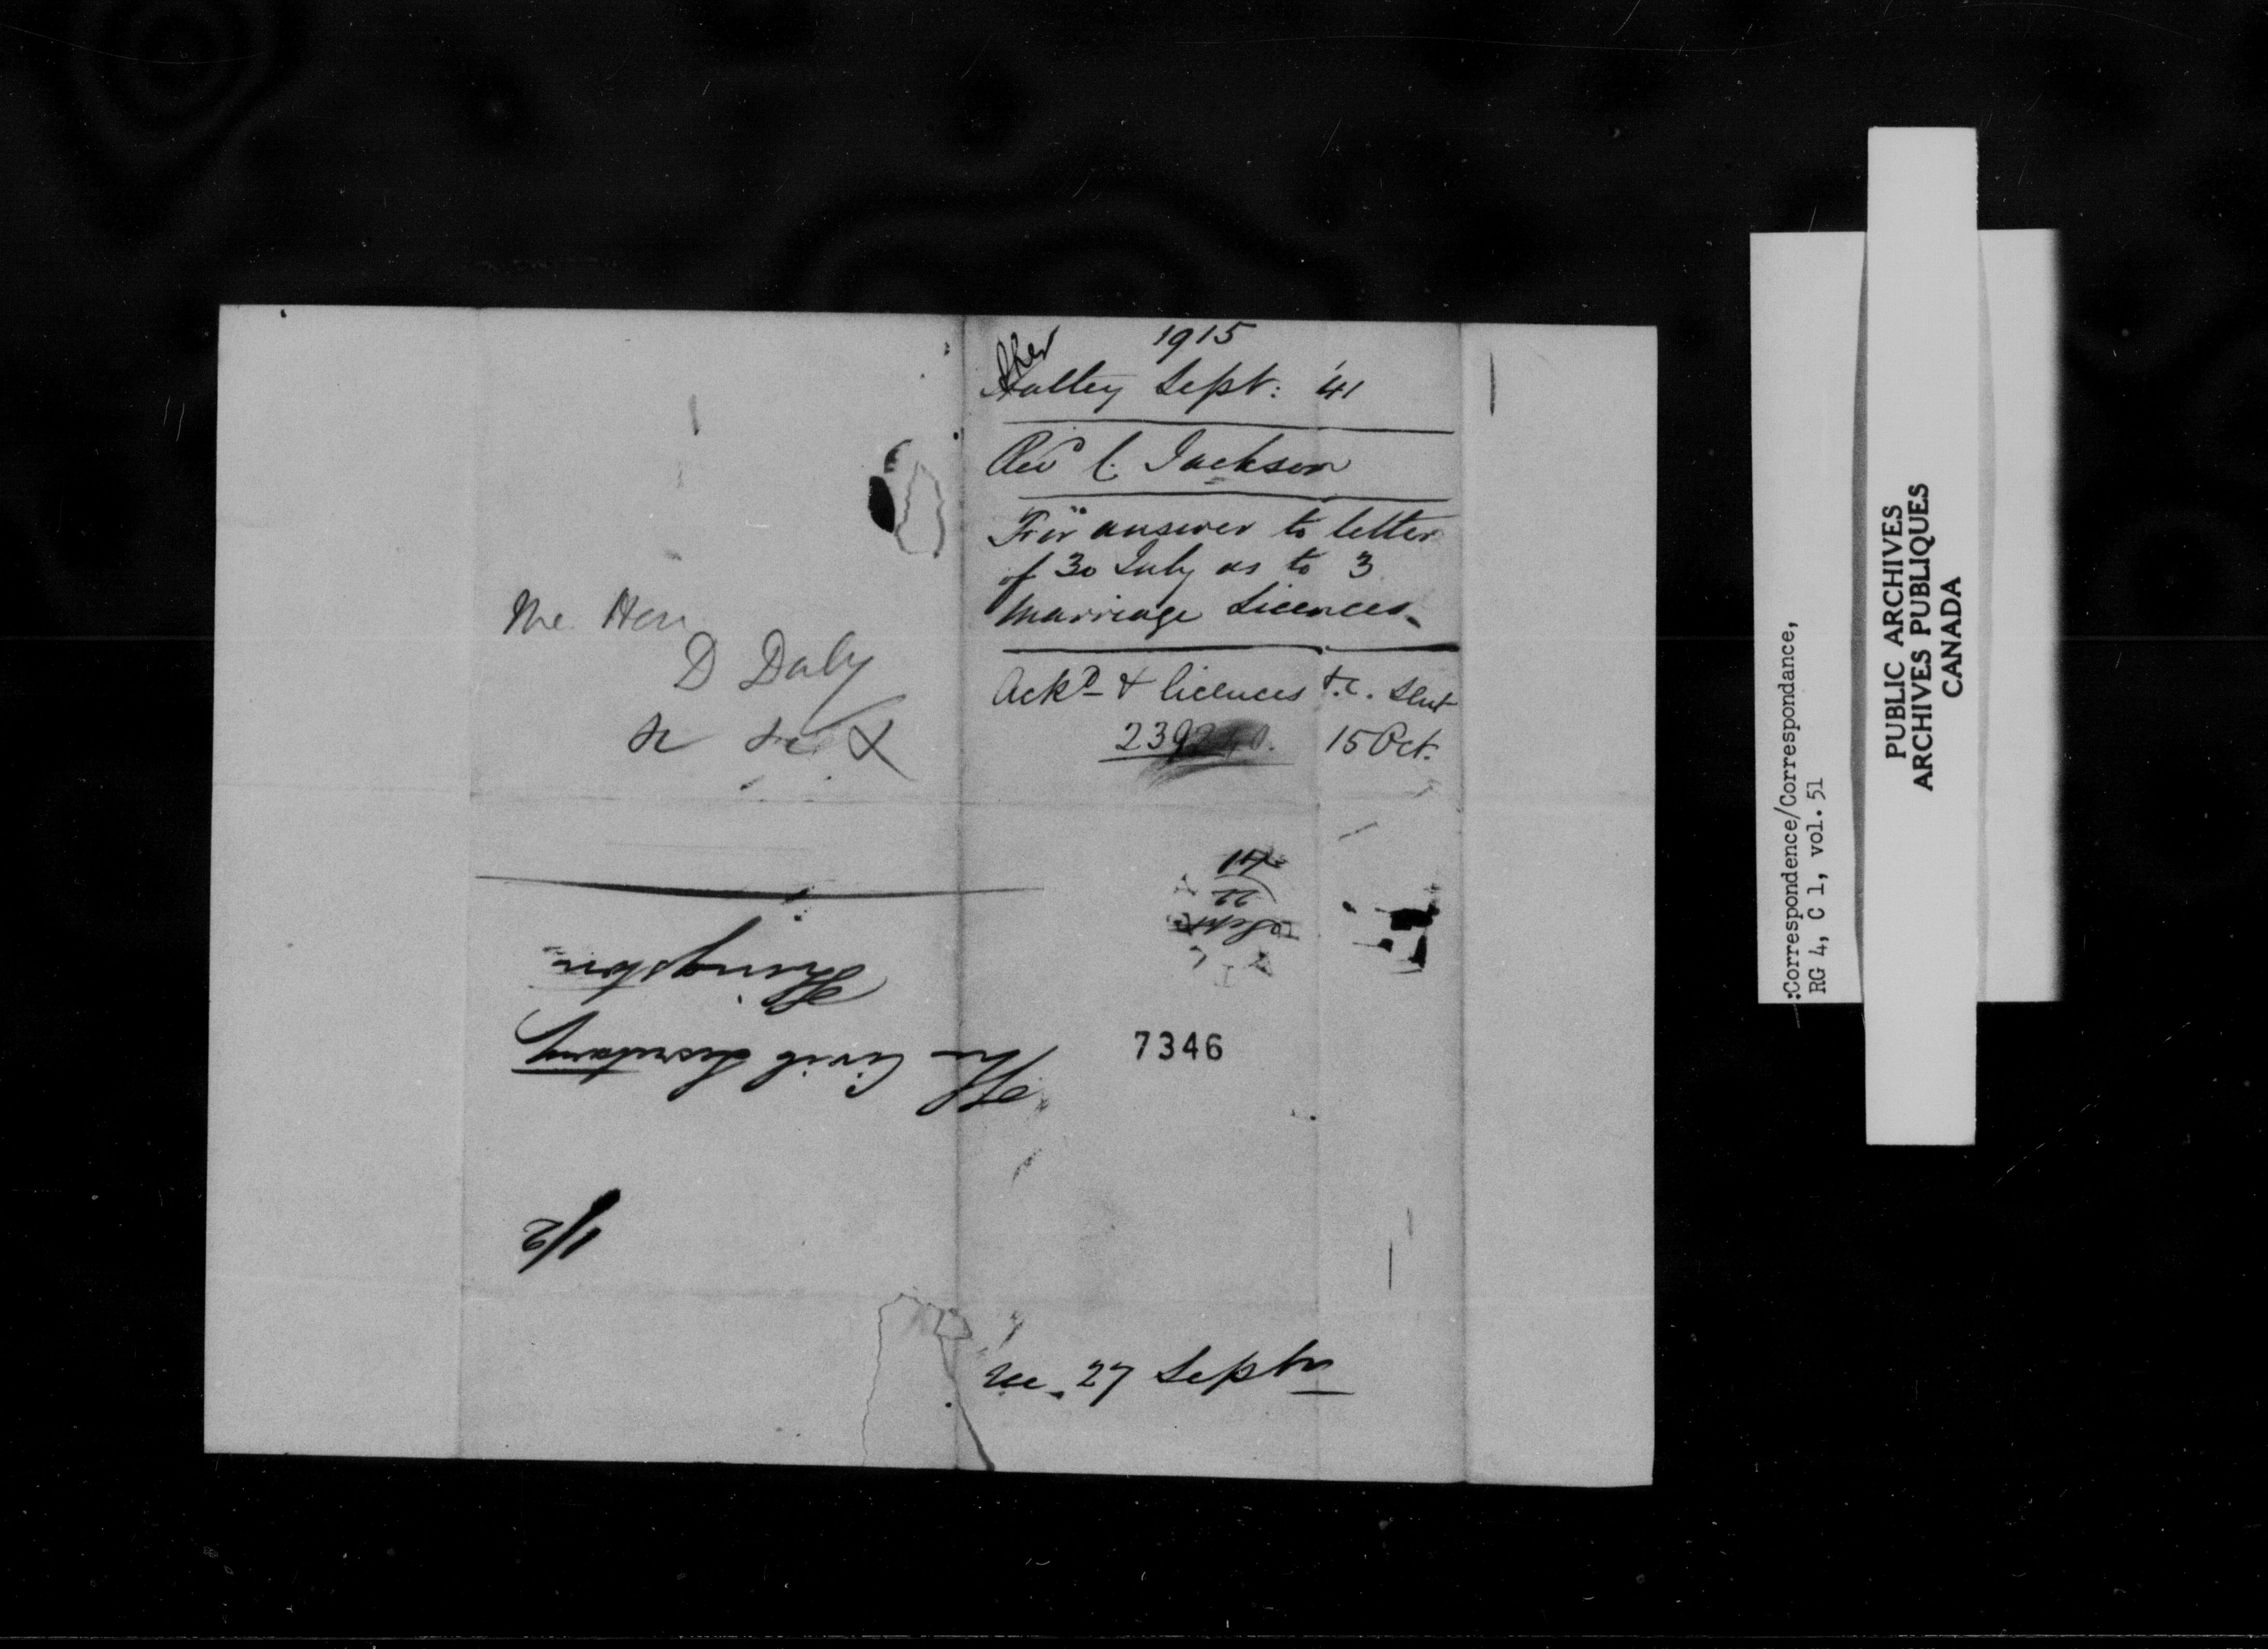 1915
Hatley Sept: '41
Revd C. Jackson
For answer to letter
of 30 July as to 3
Marriage Licences.
Ackd & licences &.c. sent
239 15 Oct.
The Hon
D Daly
&c &c &c
41
22
Sept
Kingston
The Civil Secretary
1/2
7346
Rec. 27 Septr
:Correspondence/Correspondance,
RG 4, C 1, vol. 51
PUBLIC ARCHIVES
ARCHIVES PUBLIQUES
CANADA